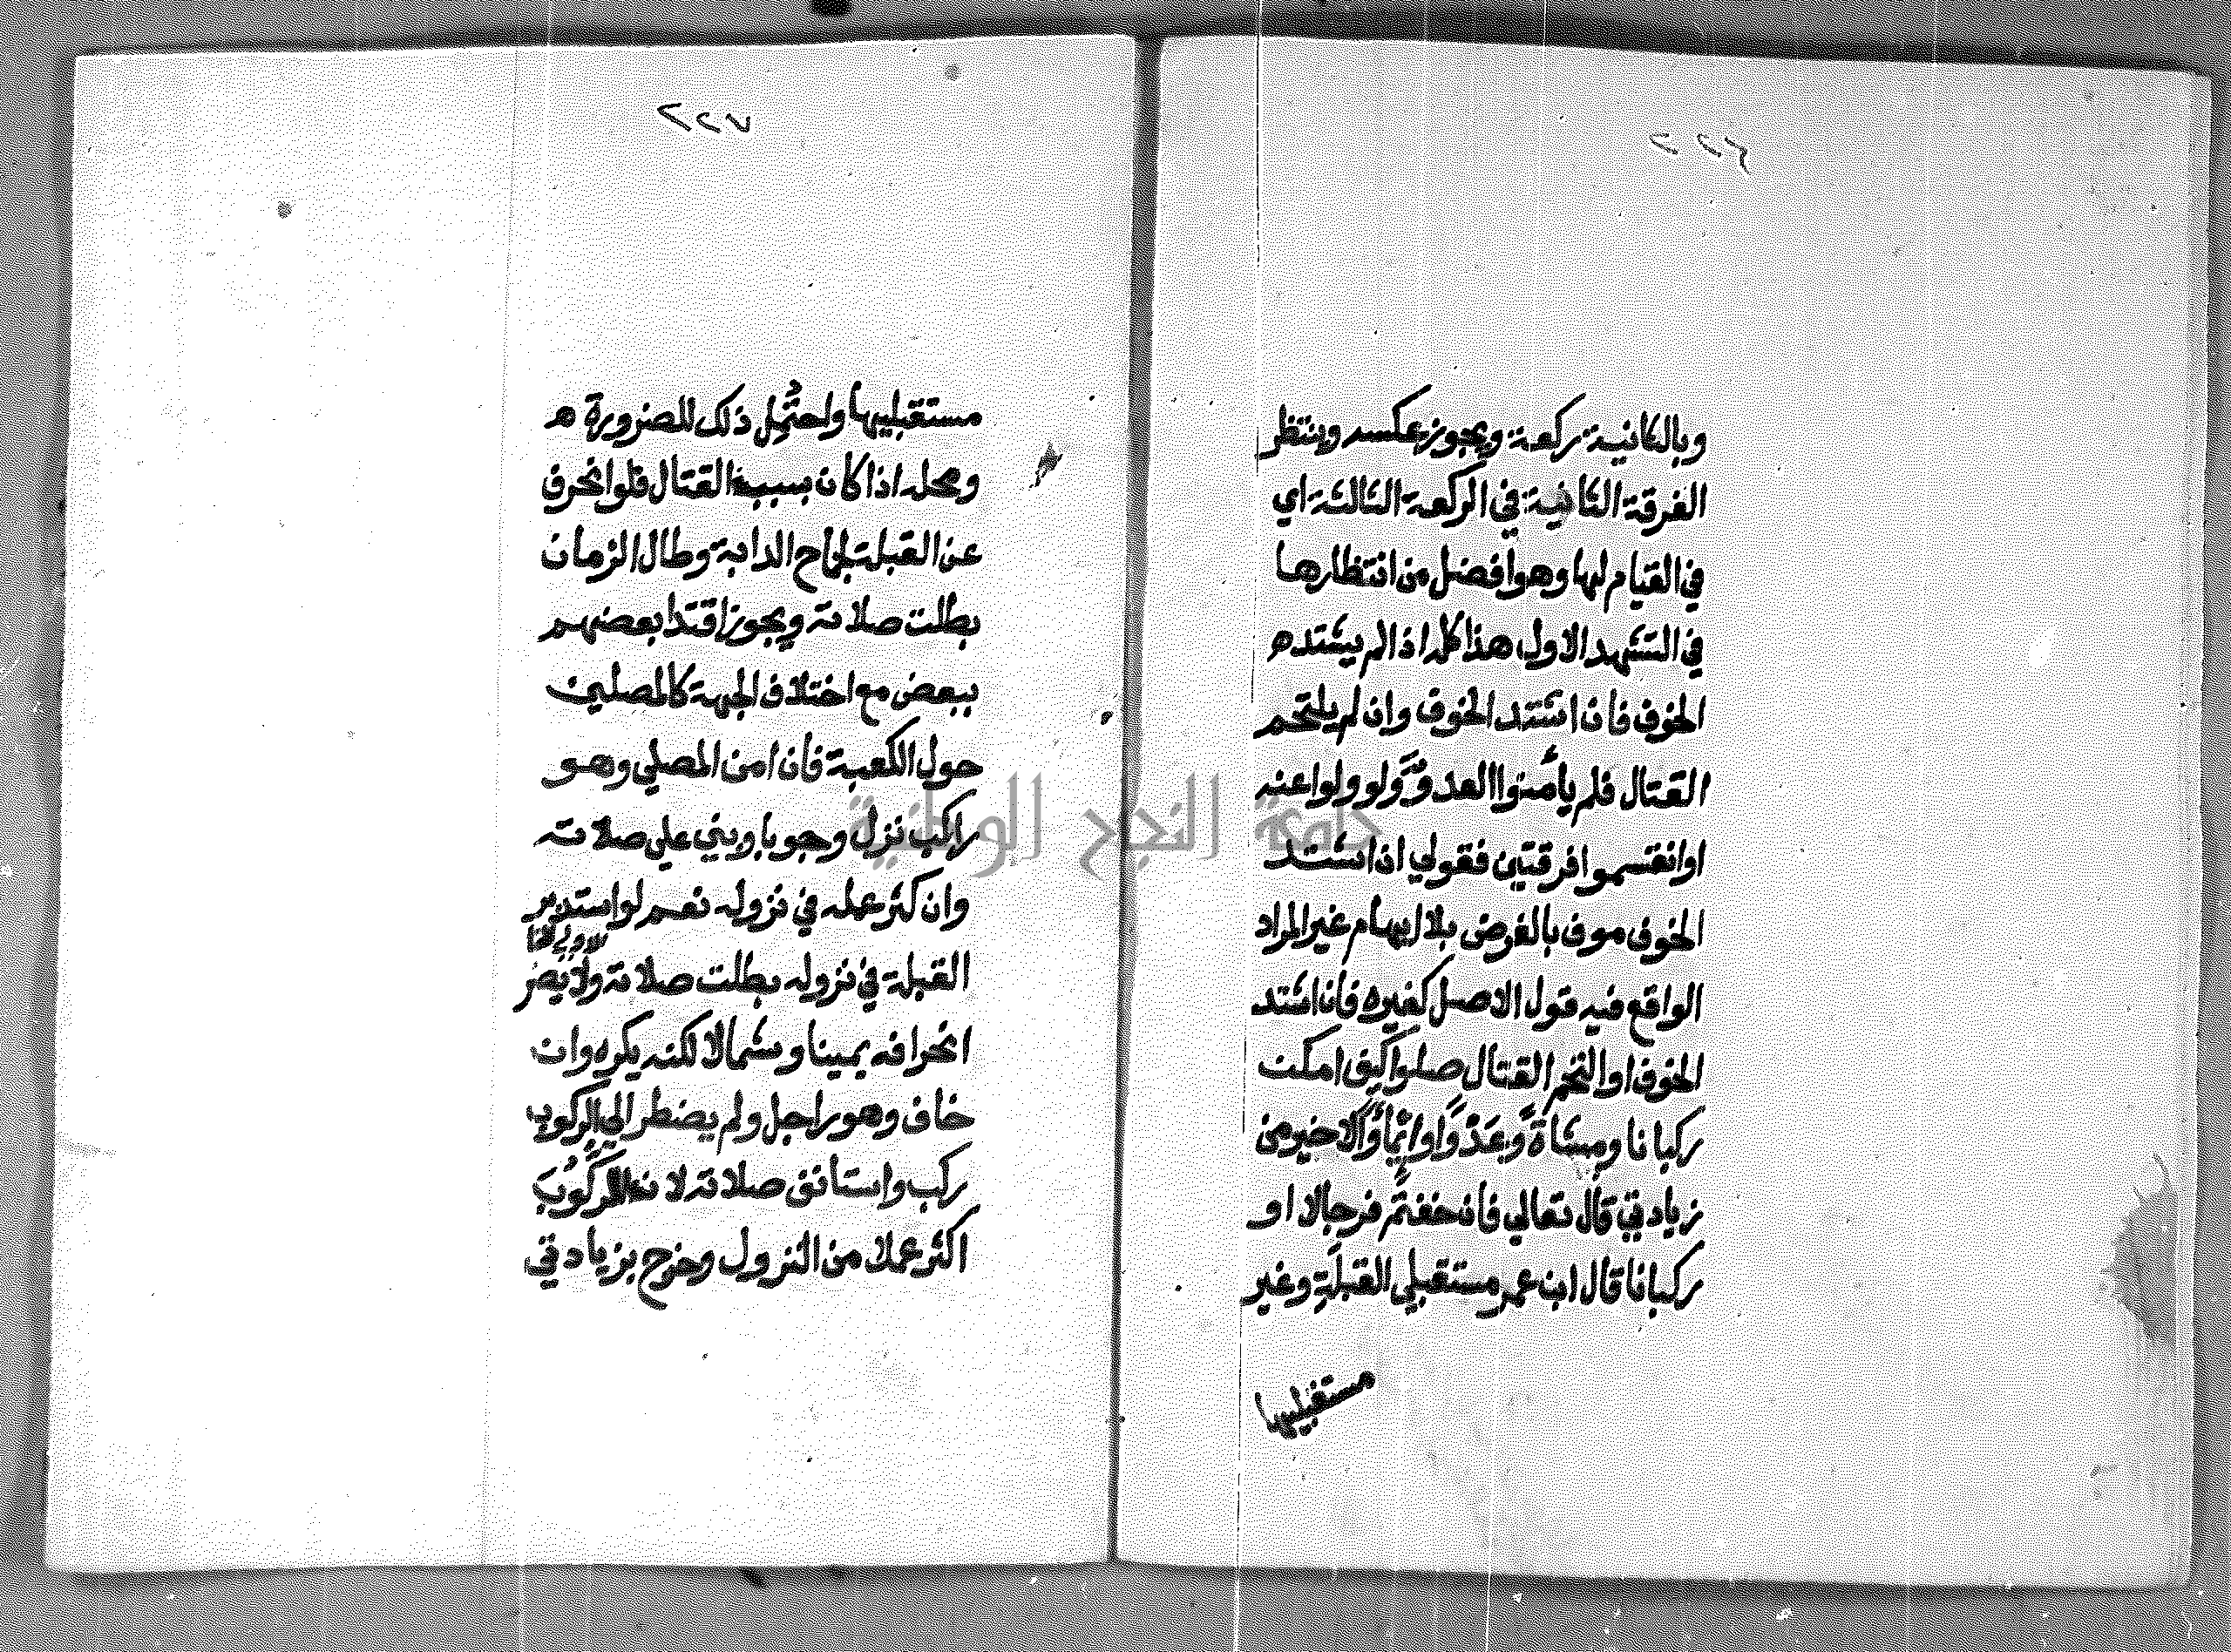 وبالثانية ركعة ويجوز عكسه وينتظر
الفرقة الثانية في الركعة الثالثة اي
في القيام لها وهو افضل من انتظارها
في التشهد الاول هذا كله اذا لم يشتد ه
الخوف فان اشتد الخوف وان لم يلتحم
القتال فلم يأمنوا العدو لو ولوا عنه
او انقسموا فرقتين فقولي ان اشتد
الخوف موف بالغرض بلا ايهام غير المراد
الواقع فيه قول الاصل كغيره فان اشتد
الخوف او التحم القتال صلوا كيف امكن
ركبانا ومشاة وعدوا وانما والاخير من
زيادتي قال تعالي فان خفتم فرجالا او
ركبانا قال ابن عمر مستقبلي القبلة وغير
مستقبليها
٢٢٧
مستقبليها واحتمل ذلك للضرورة ه
ومحله اذا كان بسبب القتال فلو انحرف
عن القبلة لجماح الدابة وطال الزمان
بطلت صلاته ويجوز اقتدا بعضهم
ببعض مع اختلاف الجهة كالمصلين
حول الكعبة فان امن المصلي وهو
راكب نزل وجوبا وبني علي صلاته
وان كثر عمله في نزوله نعم لو استدبر
القبلة في نزوله بطلت صلاته ولا يضر
انحرافه يمينا وشمالا لكنه يكره وان
خاف وهو راجل ولم يضطر الي الركوب
ركب واستانف صلاته لانه الركوب
اكثر عملا من النزول وخرج بزيادتي
جامعة النجاح الوطنية